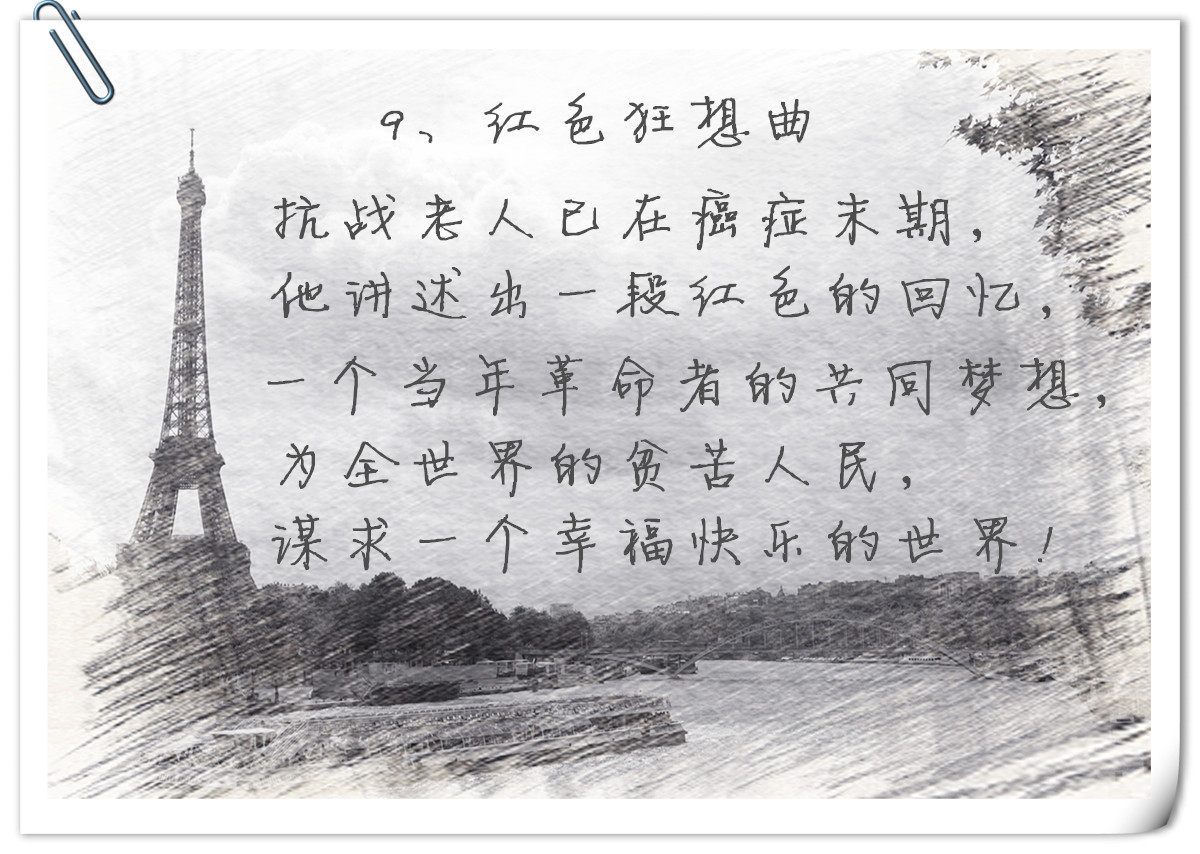 9、红色狂想曲
抗战老人已在癌症末期，
他讲述出一段红色的回忆，
一个当年革命者的共同梦想，
为全世界的贫苦人民，
谋求一个幸福快乐的世界！